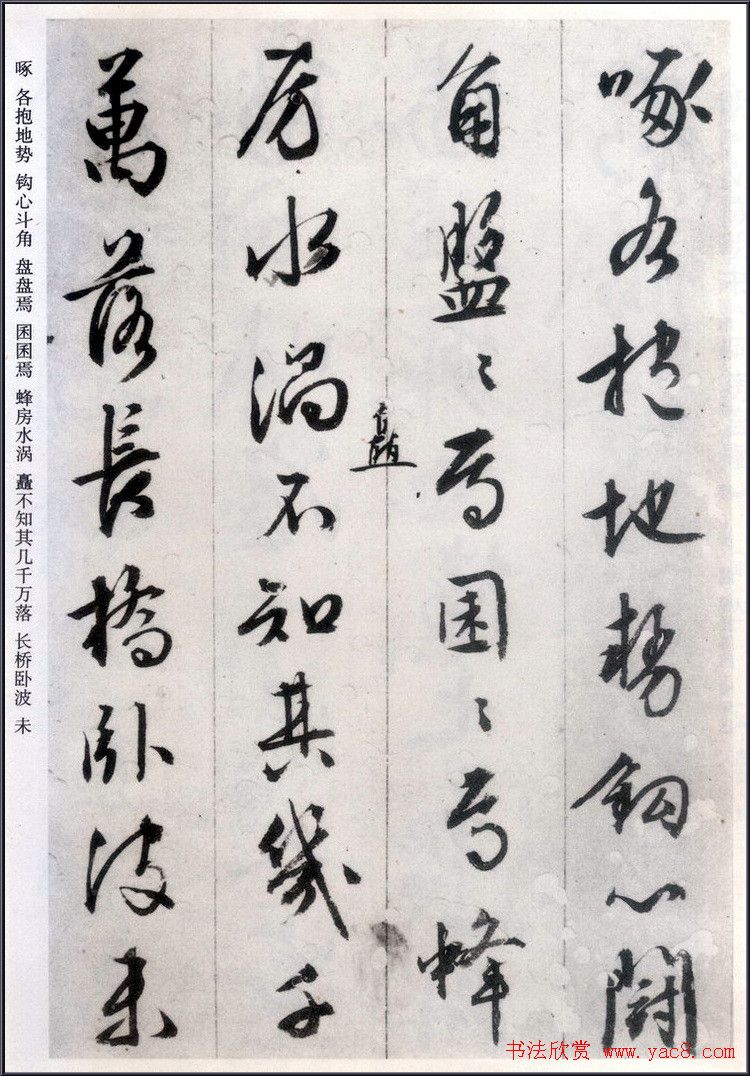 啄各抱地勢鈎心闘
角盤〻焉囷〻焉蜂
矗
房水渦不知其幾千
萬落長橋卧波未
啄 各抱地势 钩心斗角 盘盘焉 囷囷焉 蜂房水涡 矗不知其几千万落 长桥卧波 未
书法欣赏 www.yac8.com